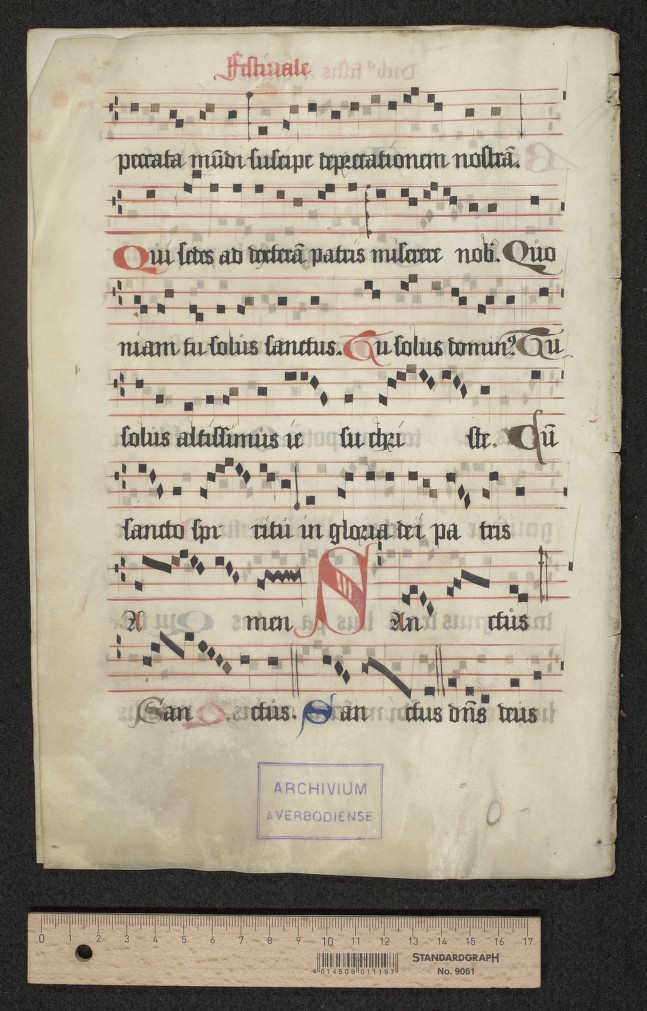 Festiuale
peccata mūdi suscipe deprecationem nostrā.
Qui sedes ad dexterā patris miserere nob. Quo
niam tu solus sanctus. Tu solus domin⁹. Tu
solus altissimus ie su chri ste. Cū
sancto spi ritu in gloria dei pa tris
A men. San ctus
San ctus. San ctus dn̄s deus
ARCHIVIUM
AVERBODIENSE
0 1 2 3 4 5 6 7 8 9 10 11 12 13 14 15 16 17
STANDARDGRAPH
4 014509 011197
No. 9061